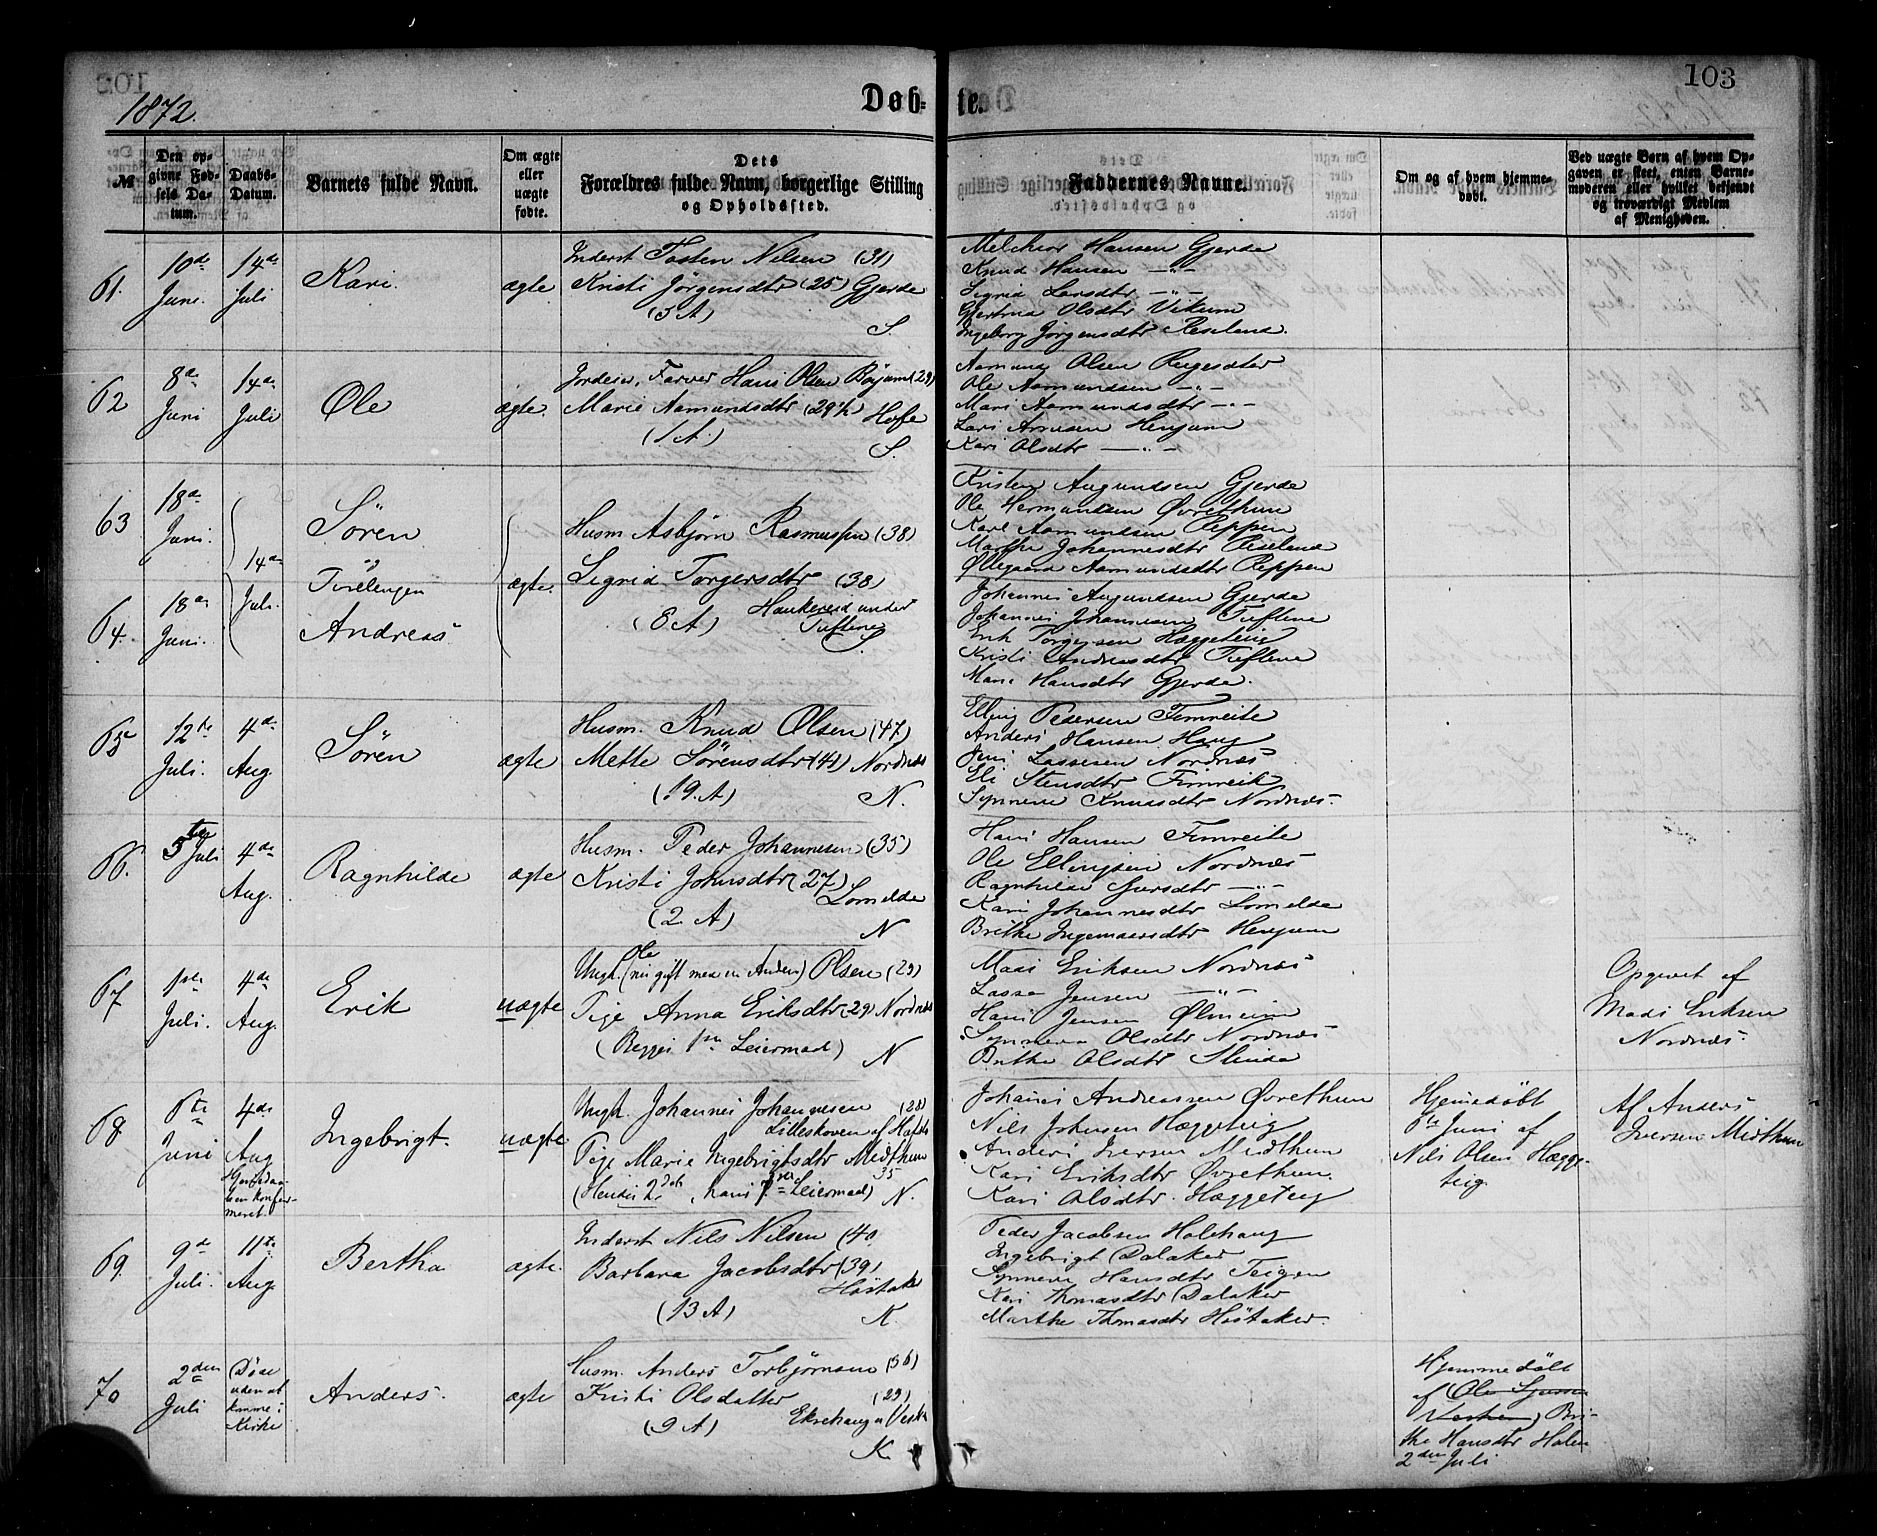 1872.
Døb-
te.
103
№
Den op-
givne Fød-
sels Da-
tum.
Daabs-
Datum.
Barnets fulde Navn.
Om ægte
eller
uægte
fødte.
Dets
Forældres fulde Navn, borgerlige Stilling
og Opholdssted.
Faddernes Navne.
Om og af hvem hjemme-
døbt.
Ved uægte Børn af hvem Op-
gaven er skeet, enten Barne-
moderen eller hvilket bekjendt
og troværdigt Medlem
af Menigheden.
61.
10de
Juni.
14de
Juli
Kari.
ægte
Inderst Tosten Nilsen (31)
Kristi Jørgensdtr (25) Gjerde
(3 A)
S.
Melchior Hansen Gjerde
Knud Hansen —"—
Sigrid Larsdtr —"—
Gjertrud Olsdtr Vikum
Ingeborg Jørgensdtr Reseland.
62
8de
Juni
14de
Juli
Ole
ægte.
Jordeier, Farver Hans Olsen Bøyum (29)
Marie Aamundsdtr (29½) Hofe
(1 A.)
S.
Aamund Olsen
Ole Aamundsen —"—
Mari Aamundsdtr —"—
Lars Henjum
Kari Olsdtr —"—
63
18de
Juni.
14de
Juli.
Søren
og
Tvillingen
ægte.
Husm Asbjørn Rasmussen (38)
Sigrid Torgersdtr (38)
(8 A) Haukereid under
Tuftene
S
Kristen Augundsen Gjerde
Ole Hermundsen Øvrethun
Karl Aamundsen Reppen
Marthe Johannesdtr Reseland
Øllegaard Aamundsdtr Reppen
64.
18de
Juni.
Andreas
Johannes Augundsen Gjerde
Johannes Johannesen Tuftene
Erik Torgersen Hæggeteig
Kristi Andreasdtr Tuftene
Mari Hansdtr Gjerde.
65
12te
Juli.
4de
Aug.
Søren
ægte
Husm. Knud Olsen (47)
Mette Sørensdtr (41) Nordnæs
(19. A)
N.
Elling Pedersen Fimreite
Anders Hansen Haug
Jens Lassesen Nordnæs
Eli Stensdtr Fimreite
Synneva Knudsdtr Nordnæs.
66.
5te Juli
4de
Aug.
Ragnhilde
ægte
Husm. Peder Johannesen (35)
Kristi Johnsdtr (27)
Lomelde
(2 A)
N
Hans Hansen Fimreite
Ole Ellingsen Nordnæs
Ragnhilde Iversdtr —"—
Kari Johannesdtr Lomelde
Brithe Ingemarsdtr Henjum
67
1ste
Juli.
4de
Aug.
Erik
uægte
Ole
Ungk. (nu gift med en Anden) Olsen (29)
Pige Anna Eriksdtr (29) Nordnæs
(Begges 1ste Leiermaal) N
Mads Eriksen Nordnæs
Lasse Jensen —"—
Hans Jensen Ølmeim
Synneva Olsdtr Nordnæs
Brithe Olsdtr Slinde
Opgivet af
Mads Eriksen
Nordnæs.
68
6te
Juni
4de
Aug
Hjemmedaa-
ben konfir-
meret.
Ingebrigt.
uægte
Ungk. Johannes Johannesen (28)
Lilleskoven af Hafslo
Pige Marie Ingebrigtsdtr Midthun
35
(Hendes 2det, hans 1ste Leiermaal) N.
Johannes Andreassen Øvrethun
Nils Johnsen Hæggeteig
Anders Iversen Midthun
Kari Eriksdtr Øvrethun.
Kari Olsdtr. Hæggeteig
Hjemmedøbt
6te Juni af
Nils Olsen Hægge-
teig.
Af Anders
Iversen Midthun
69.
9de
Juli.
11te
Aug.
Bertha
ægte.
Inderst Nils Nilsen (40)
Barbara Jacobsdtr (39)
Høstaker
(13 A)
K.
Peder Jacobsen Holehaug
Ingebrigt Dalaker
Synneva Hansdtr Teigen
Kari Thomasdtr Dalaker
Marthe Thomasdtr Høstaker.
70
2den
Juli
Døde
uden at
komme i
Kirke
Anders.
ægte
Husm. Anders Torbjørnsen (36)
Kristi Olsdatter (29)
(9 A)
K
Hjemmedøbt
af Bri-
the Hansdtr Holen
2den Juli